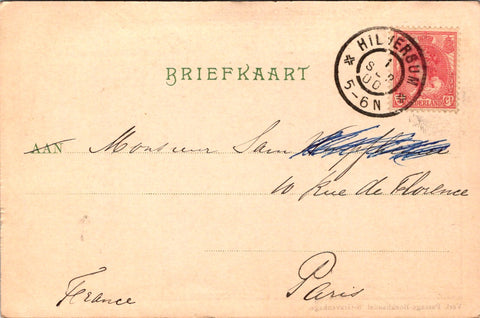 HILVERSUM
1 SEP 00
5-6N
NEDERLAND
BRIEFKAART
AAN Monsieur Sam
10 Rue de Florence
Paris
France